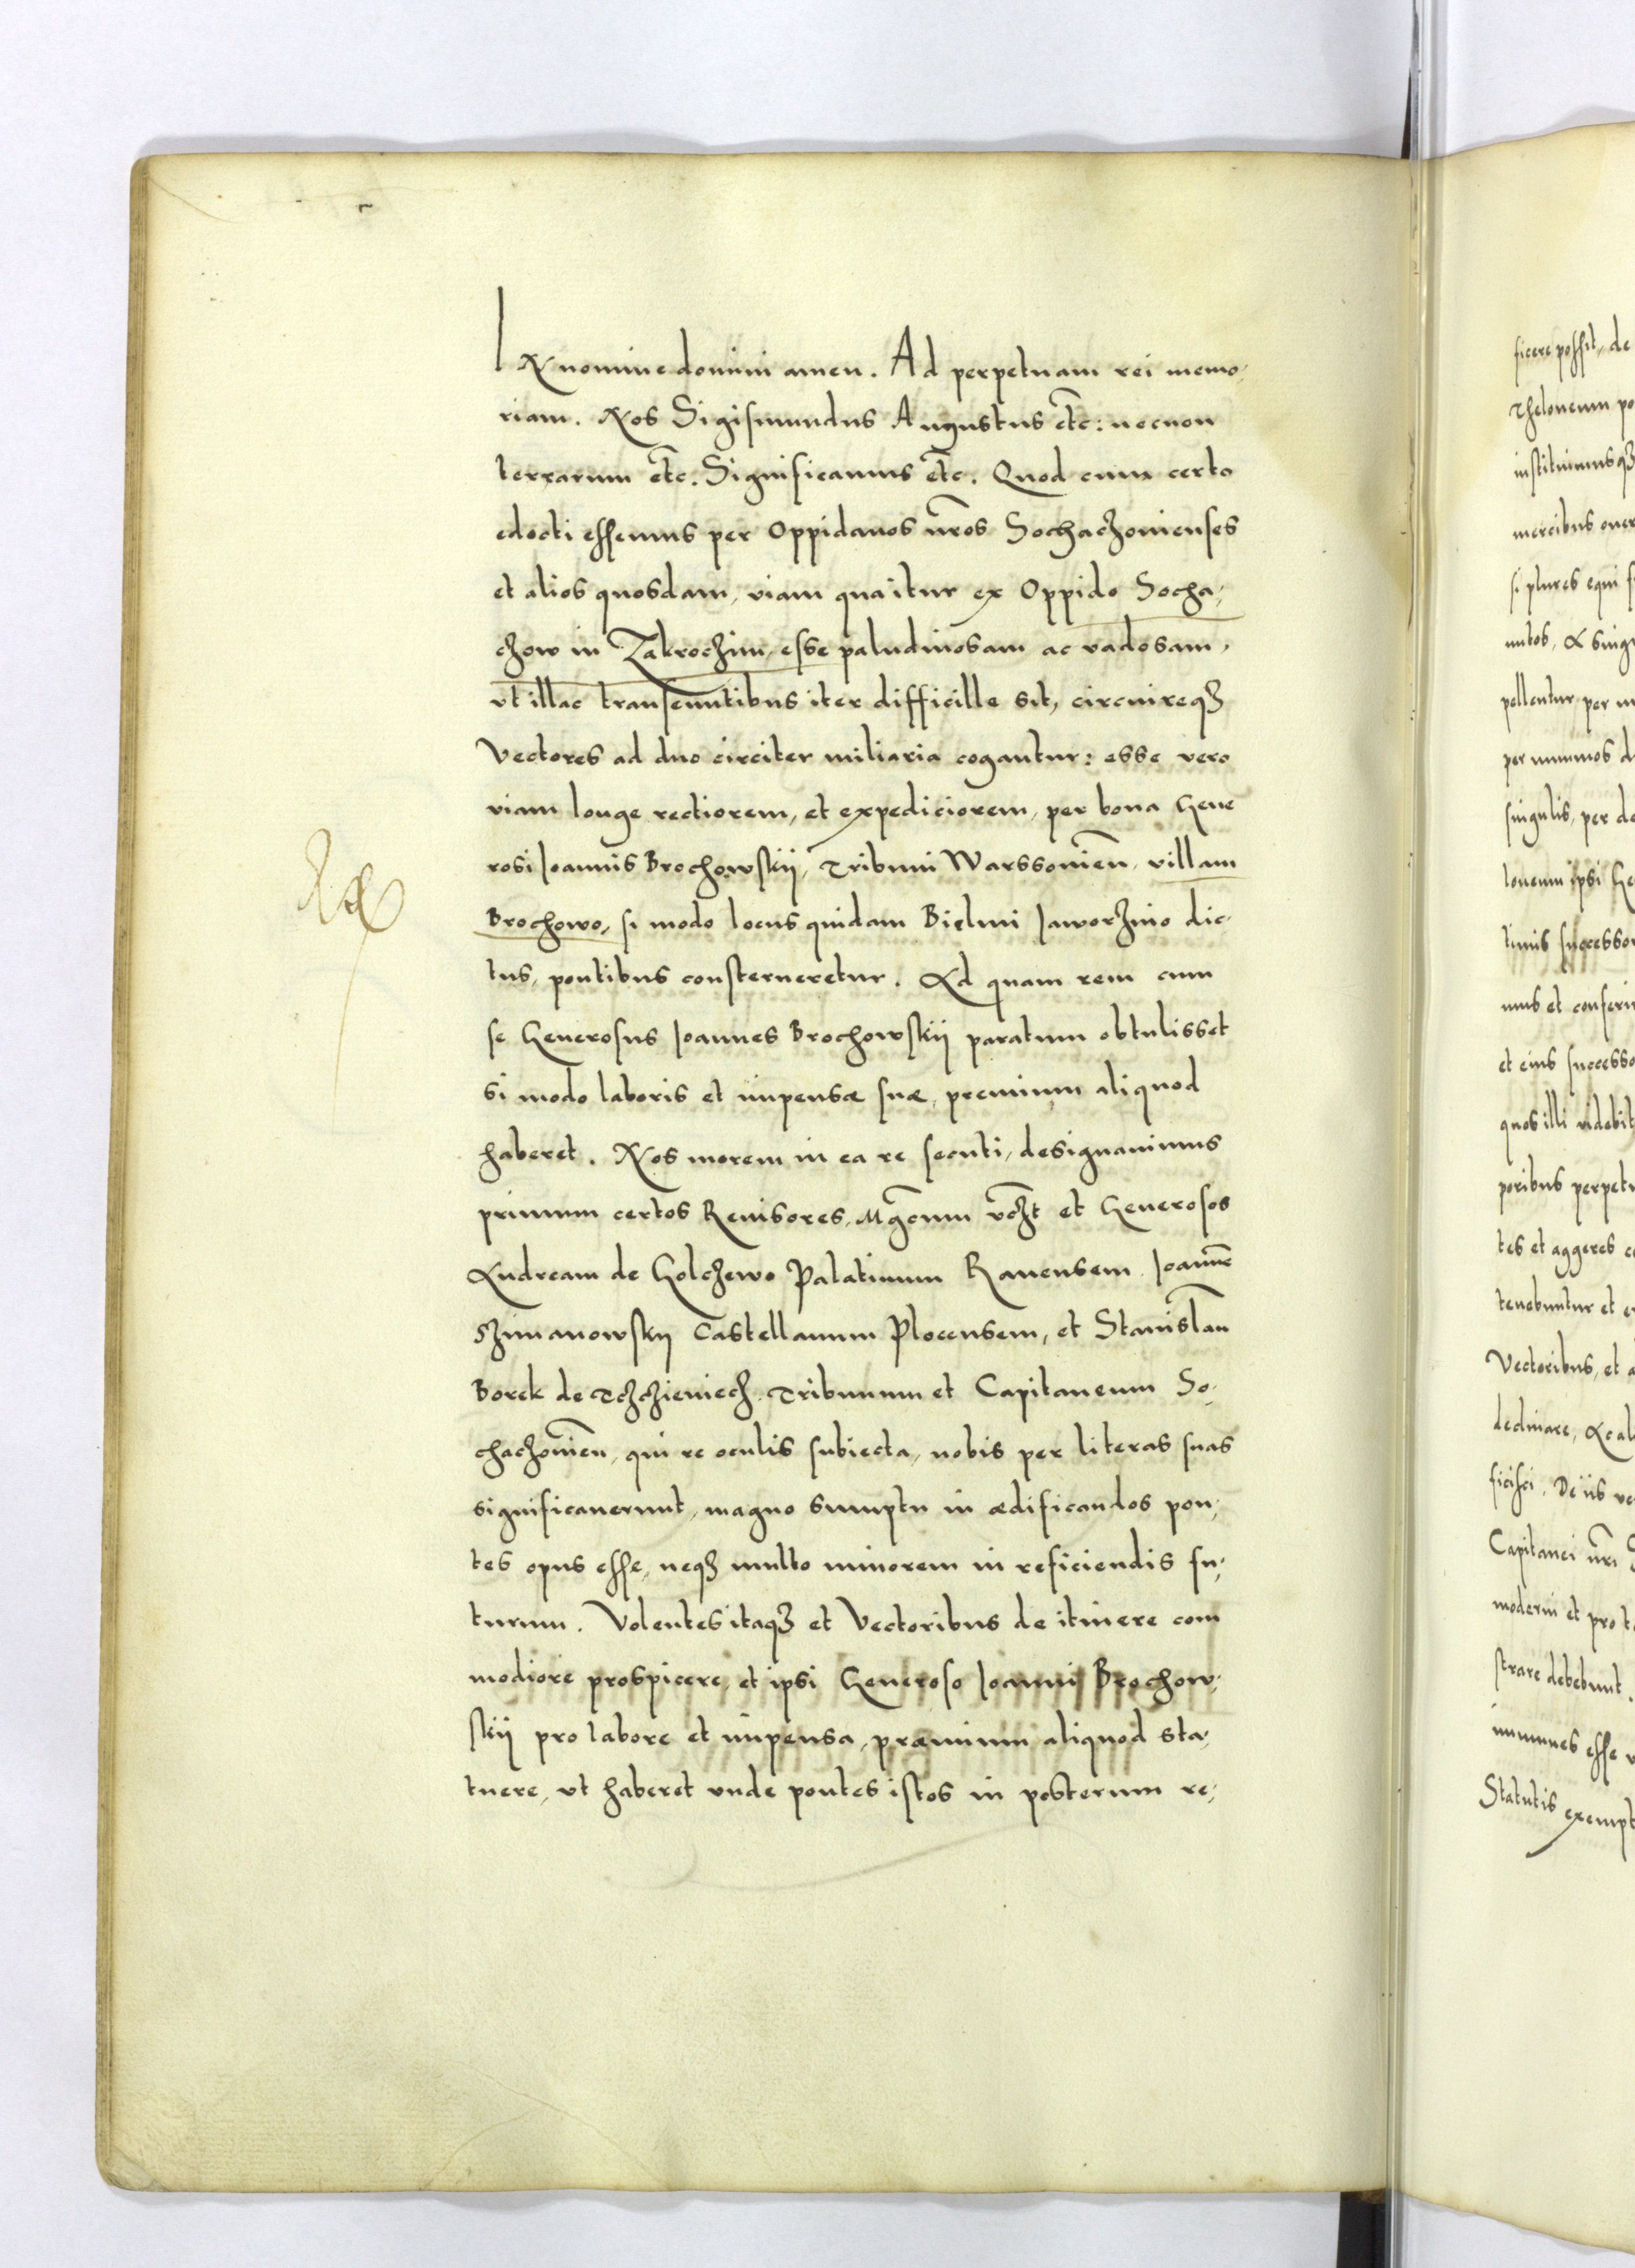 IN nomine domini amen. Ad perpetuam rei memo,
riam. Nos Sigismundus Augustus etc: necnon
terrarum etc. Significamus etc. Quod cum certo
edocti essemus per Oppidanos nr̃os Sochaczouienses
et alios quosdam, viam qua itur ex Oppido Socha,
czow in Zakroczim, esse paludinosam ac vadosam,
vt illac transeuntibus iter difficille sit, circuireqȝ
Vectores ad duo circiter miliaria cogantur: esse vero
viam longe rectiorem, et expediciorem, per bona Gene
rosi Joannis Brochowskij, Tribuni Warssouien̄, villam
Brochowo, si modo locus quidam Bielmi Jaworznio dic,
tus, pontibus consterneretur. Ad quam rem cum
se Generosus Joannes Brochowskij paratum obtulisset
si modo laboris et impensæ suæ, premium aliquod
haberet. Nos morem in ea re secuti, designauimus
primum certos Reuisores, Mgc̃um vczt et Generosos
Andream de Golczewo Palatinum Rauensem, Joannē
Szimanowskij Castellanum Plocensem, et Stanislaū
Borek de Tczczieniecz, Tribunum et Capitaneum So,
chaczouien̄, qui re oculis subiecta, nobis per literas suas
significauerunt, magno sumptu in ædificandos pon,
tes opus esse, neqȝ multo minorem in reficiendis fu,
turum. Volentes itaqȝ et Vectoribus de itinere com
modiore prospicere, et ipsi Generoso Joanni Brochow,
skij pro labore et impensa, præmium aliquod sta,
tuere, vt haberet vnde pontes istos in posterum re,
ficere possit, de
Theloneum po
instituimusqȝ
mercibus oner
si plures equi
pellentur per
per nummos d
singulis, per de
loneum ipsi Ge
timis successor
mus et conferi
et eius successo
quos illi videbit
poribus perpetu
tes et aggeres c
tenebuntur et
Vectoribus, et a
declinare, &
ficisci. De iis
Capitanei nr̃i
moderni et pro t
strare debebunt.
immunes esse
Statutis exempt